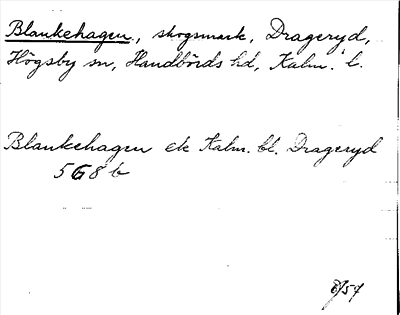 Blankehagen, skogsmark, Drageryd,
Högsby sn, Handbörds hd, Kalm. l.
Blankehagen ek Kalm. bl. Drageryd
568 b
8/57